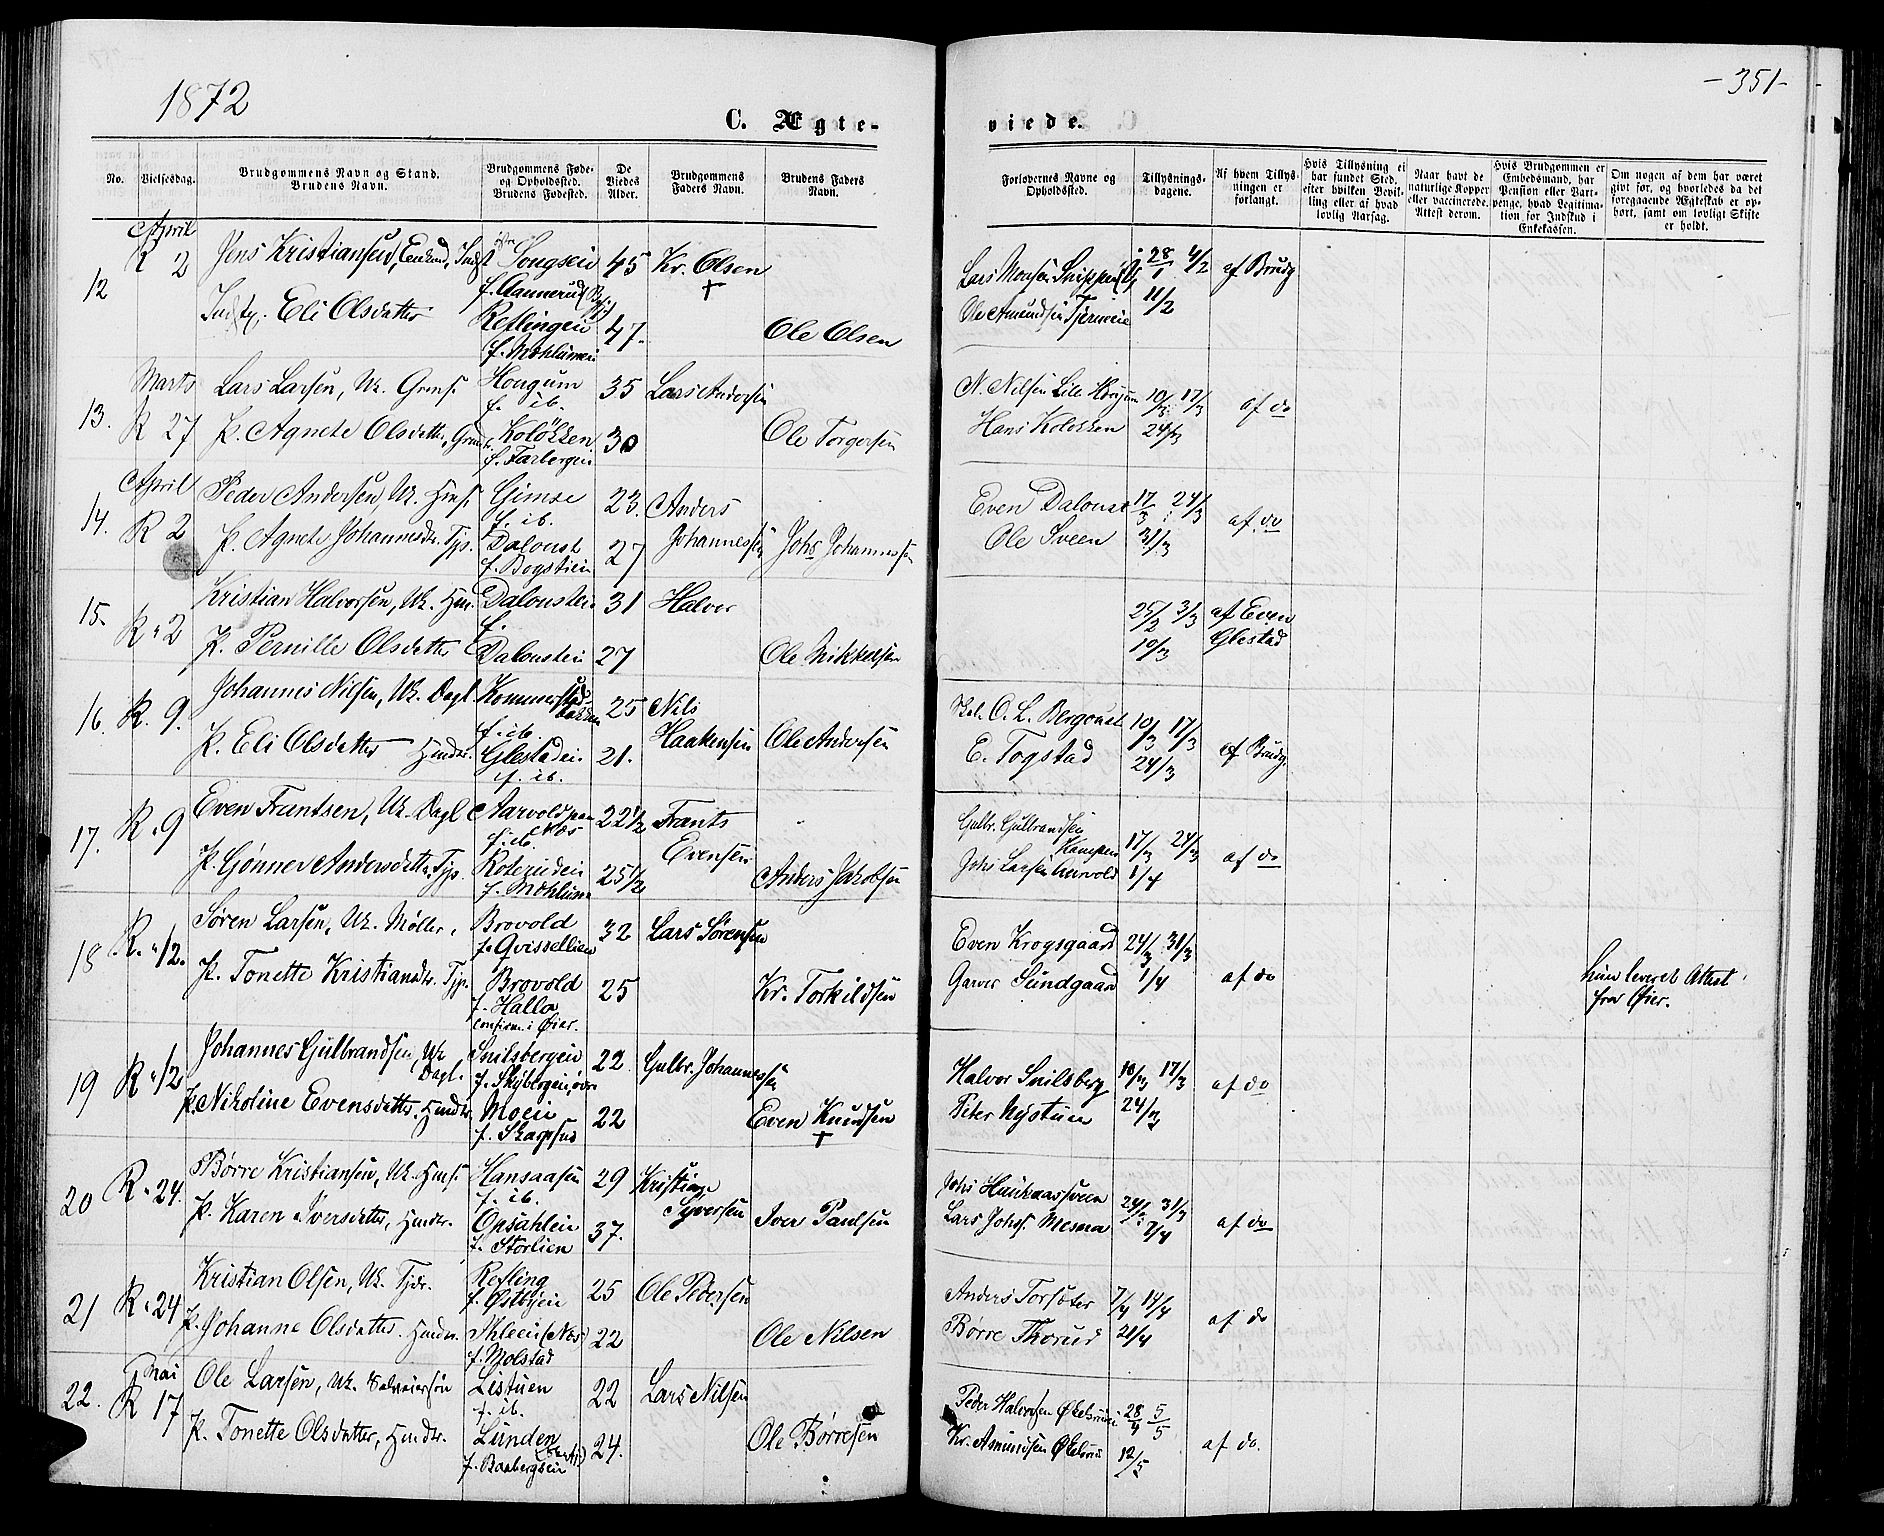 1872
-351-
C. Ægte-
viede.
No.
Vielsesdag.
Brudgommens Navn og Stand.
Brudens Navn.
Brudgommens Føde-
og Opholdssted.
Brudens Fødested.
De
Viedes
Alder.
Brudgommens
Faders Navn.
Brudens Faders
Navn.
Forlovernes Navne og
Opholdssted.
Tillysnings-
dagene.
Af hvem Tillys-
ningen er
forlangt.
Hvis Tillysning ei
har fundet Sted,
efter hvilken Bevil-
ling eller af hvad
lovlig Aarsag.
Naar havt de
naturlige Kopper
eller vaccinerede.
Attest derom.
Hvis Brudgommen er
Embedsmand, har
Pension eller Vart-
penge, hvad Legitima-
tion for Indskud i
Enkekassen.
Om nogen af dem har været
gift før, og hvorledes da det
foregaaende Ægteskab er op-
hørt, samt om lovligt Skifte
er holdt.
April
12 R 2 Jens Kristiansen, Enkemd, Indst Songsein 45 Kr. Olsen † 28/1 4/2 af Brudg.
f. Aannerud
Eli Olsdatter Reflingen 47. Ole Olsen Ole Amundsen 11/2
f. Mæhlumei
Marts
13. R 27 Lars Larsen, Uk. Hougum 35 Lars Andersen N. Nilsen Lille Hougum 10/3 17/3 af do
f. ib.
P. Agnete Olsdatter, Koløkken 30 Ole Torgersen Hans Kolokken 24/3
f. Farbergei
April
14. R 2 Peder Andersen, Uk. Hmf. Gimse 23. Anders Johannessen Even Daloust 17/3 24/3 af do
f. ib.
P. Agnete Johannesdr. Tjp. Daloust 27 Johs Johannessen Ole Sveen 31/3
f. Bogstiein
15. R " 2 Kristian Halvorsen, Uk. Hm. Dalousteie 31 Halvor 25/2 3/3 af Even
f.
P. Pernille Olsdatter Daloustein 27 Ole Mikkelsen 10/3 Glestad
16. R. 9. Johannes Nilsen, Uk. Dagl. 25 Nils Haakensen O. L. Bergoust 10/3 17/3 af Brudg.
f. ib.
P. Eli Olsdatter Hmdr. Glestadei 21. Ole Andersen E. Togstad 24/3
f. ib.
17. R. 9 Even Frantsen, Uk. Dagl Aarvold paa Næs 22 1/2 Frants Evensen Gulbr. Gulbrandsen Kampen 17/3 24/3 af do
f. ib.
P. Gønner Andersdatter, Tjp. Roterudein 25 1/2 Anders Jakobsen Johs Larsen Aurvold 1/4
f. Mæhlum
18 R. " 12. Søren Larsen, Uk. Møller, Brovold 32 Lars Sørensen Even Krogsgaard 24/3 31/3 af do
f. Qvissellien
P. Tonette Kristiansdr. Tjp. Brovold 25 Kr. Torkildsen Garver Sundgaard 1/4 hun leveret Attest
f. Halla fra Øier.
confirm. i Øier.
19 R " 12 Johannes Gulbrandsen, Uk Dagl. Snilsbergein 22 Gulbr. Johannessen Halvor Snilsberg 10/3 17/3 af do
f. Skybergein, øvre
P. Nikoline Evensdatter. Hmdr. Moein 22 Even Knudsen † Peter Nystuen 24/3
f. Skapfus
20 R " 24. Børre Kristiansen, Uk. Hmf. Hansaasen 29 Kristian Syversen Johs 24/3 31/3 af do
f. ib.
P. Karen Iversdatter, Hmdr. Opsahlein 37. Iver Paulsen Lars Johsf. Mesna 7/4
f. Storlien
21 R " 24 Kristian Olsen, Uk. Tjdr. Refling 25 Ole Pedersen Anders Torsæter 7/4 14/4 af do
f. Østbyein
P. Johanne Olsdatter. Hmdr. (Næs) 22 Ole Nilsen Børre Thorud 21/4
f. Molstad
Mai
22. R 17 Ole Larsen, Uk. Listuen 22 Lars Nilsen Peder Halvorsen 28/4 5/5 af do.
f. ib.
P. Tonette Olsdatter, Hmdr. Lunden 24. Ole Børresen Kr. Amundsen 12/5
f. Baabergseie